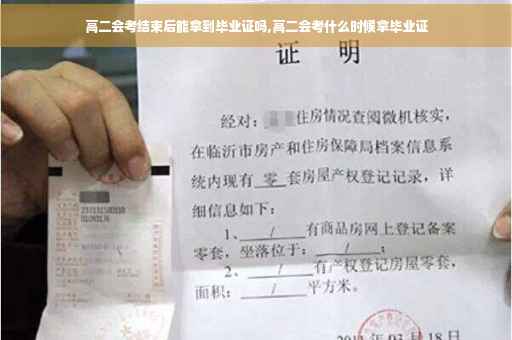 高二会考结束后能拿到毕业证吗,高二会考什么时候拿毕业证
证 明
经对：住房情况查阅微机核实，
在临沂市房产和住房保障局档案信息系
统内现有 零 套房屋产权登记记录，详
细信息如下：
1、 / 有商品房网上登记备案
零套，坐落位于： / ；
2、 / 有产权登记房屋零套，
面积： / 平方米。
03 月 18 日